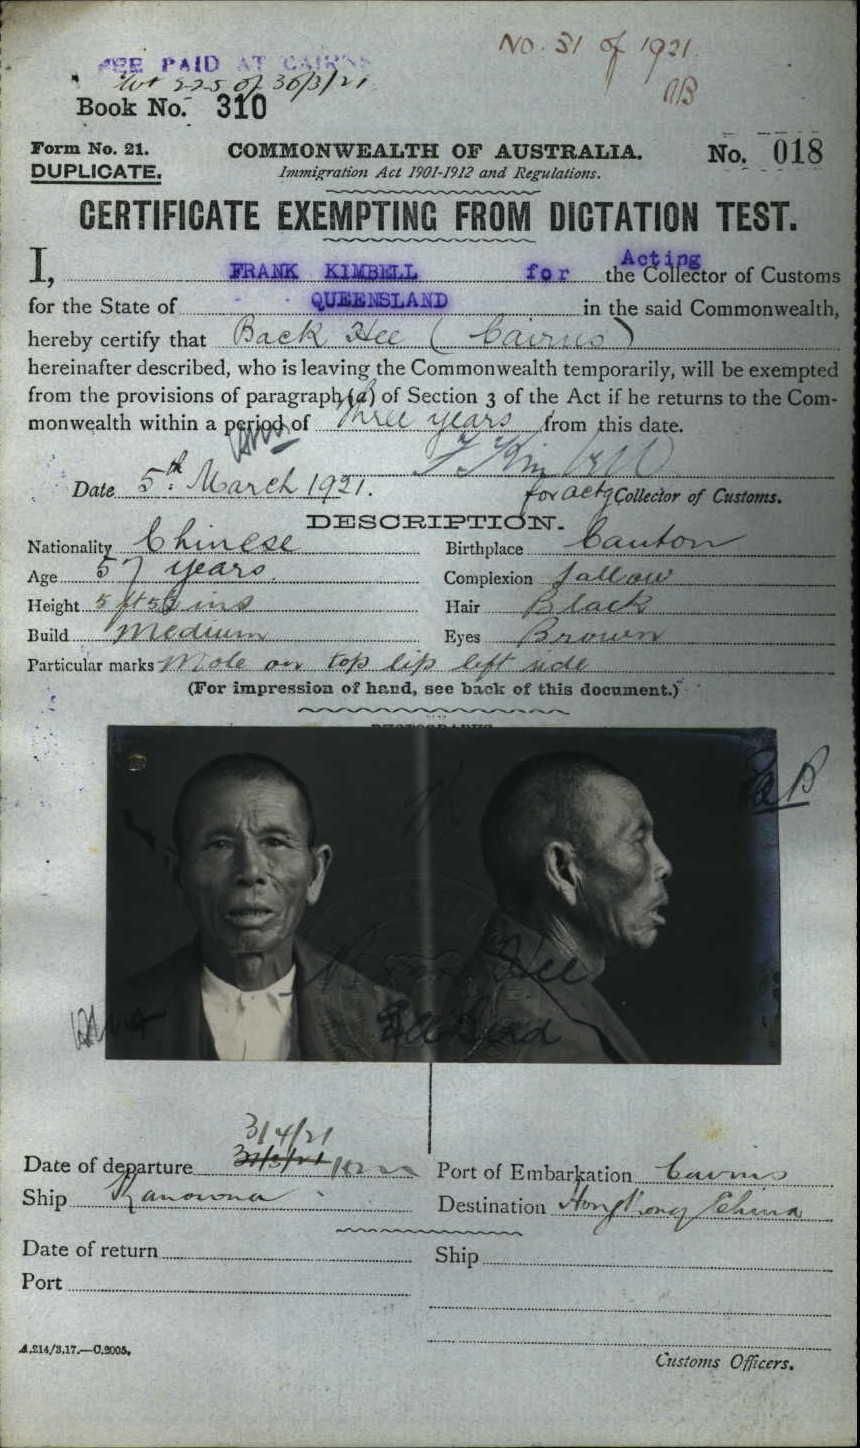 No. 51 of 1921.
FEE PAID AT CAIRNS
225 of 30/3/21
Book No. 310
Form No. 21.
DUPLICATE.
COMMONWEALTH OF AUSTRALIA.
No. 018
Immigration Act 1901-1912 and Regulations.
CERTIFICATE EXEMPTING FROM DICTATION TEST.
I, FRANK KIMBELL for Acting the Collector of Customs
for the State of QUEENSLAND in the said Commonwealth,
hereby certify that Back Hee (Cairns)
hereinafter described, who is leaving the Commonwealth temporarily, will be exempted
from the provisions of paragraph (a) of Section 3 of the Act if he returns to the Com-
monwealth within a period of Three years from this date.
F. Kimbell
Date 5th March 1921. for actg Collector of Customs.
DESCRIPTION.
Nationality Chinese Birthplace Canton
Age 57 years. Complexion Sallow
Height 5 ft ins Hair Black
Build Medium Eyes Brown
Particular marks Mole on top lip left side
(For impression of hand, see back of this document.)
PHOTOGRAPHS
Hee
3/4/21
Date of departure 31/3/21 Port of Embarkation Cairns
Ship Kanowna Destination Hong Kong China
Date of return Ship
Port
A.214/3.17.—C.2005.
Customs Officers.